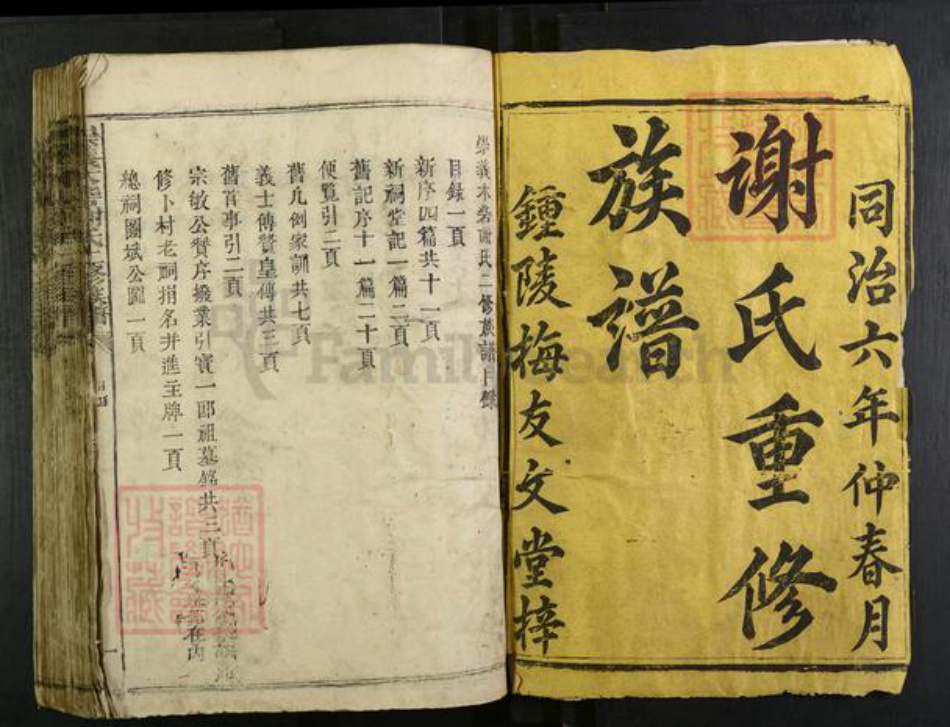 同治六年仲春月
謝氏重修
族譜
鍾陵梅友文堂梓
崇義木峇謝氏二修族譜目錄
目錄一頁
新序四篇共十一頁
新祠堂記一篇二頁
舊記序十一篇二十頁
便覽引二頁
舊凡例家訓共七頁
義士傳贊皇傳共三頁
舊首事引二頁
宗敏公贊序撥業引寶一郎祖墓銘共三頁
修卜村老祠捐名并進主牌一頁
總祠圖斌公圖一頁
在內
FamilySearch